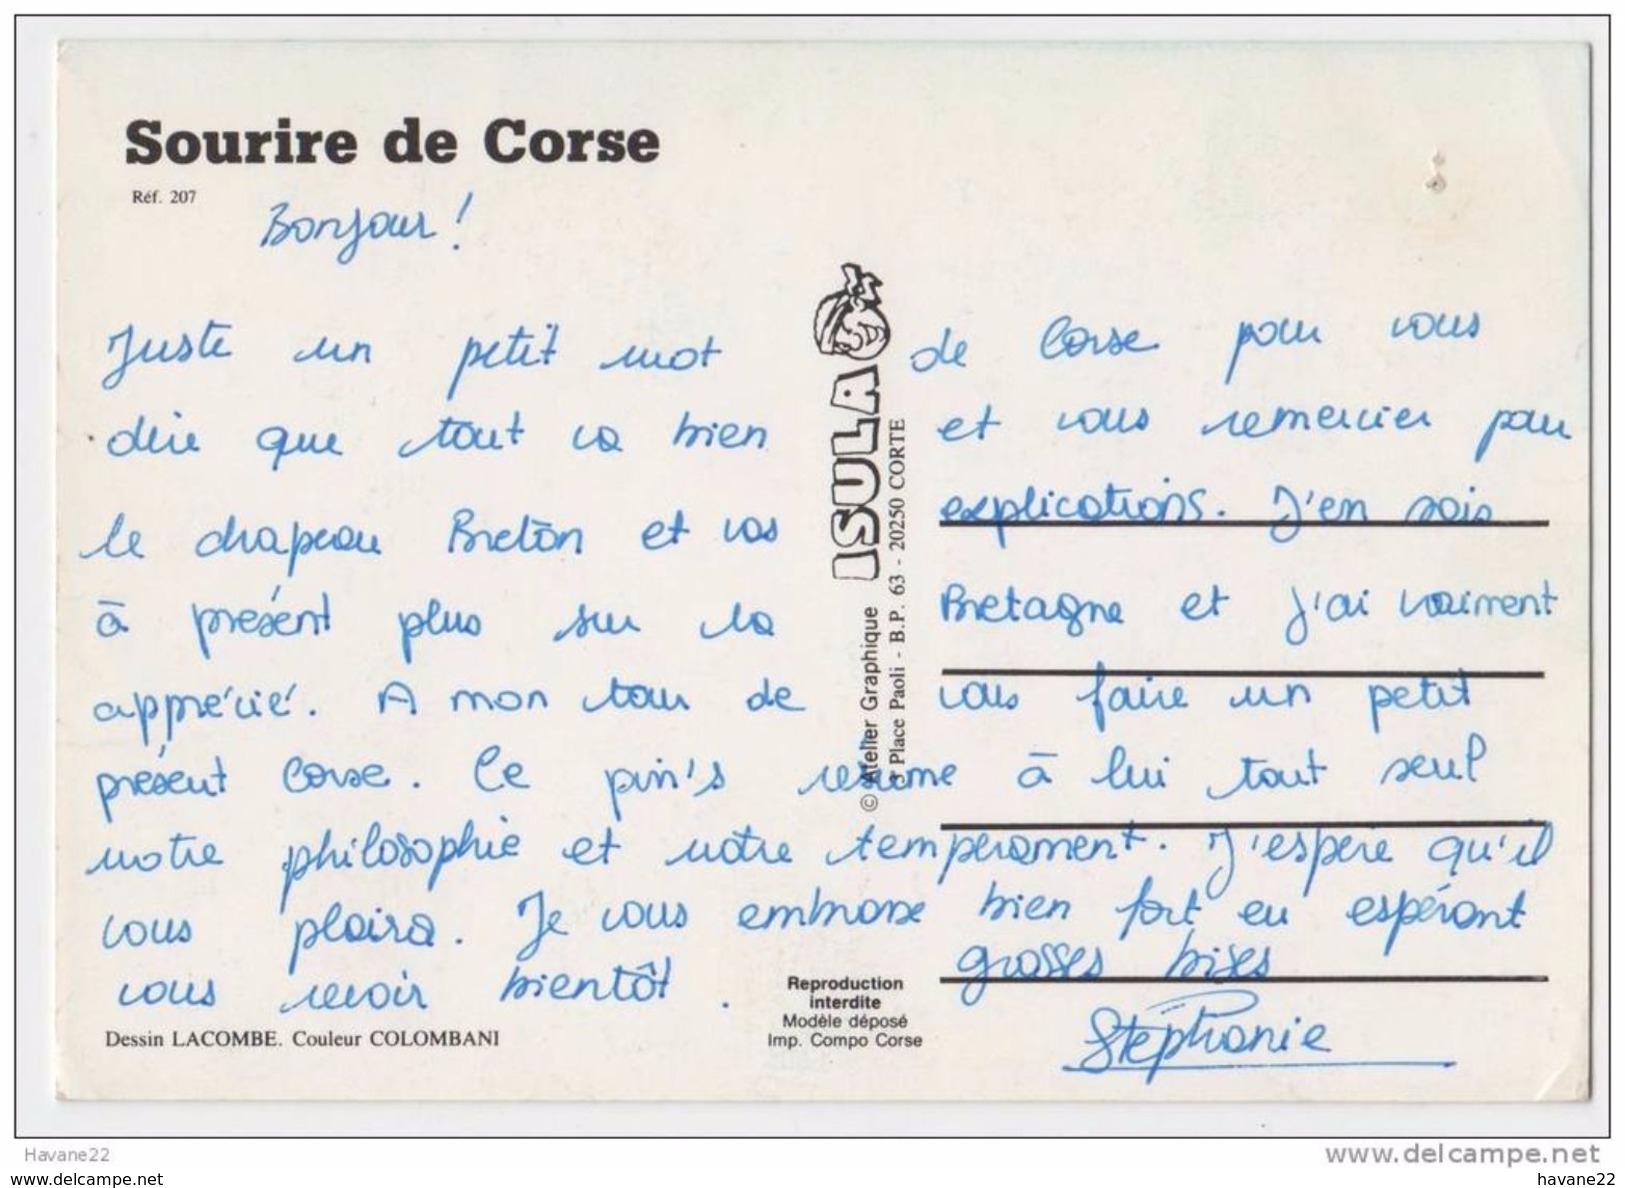 Sourire de Corse
Réf. 207
Bonjour !
Juste un petit mot de Corse pour vous
dire que tout va bien et vous remercier pour
le chapeau Breton et vos explications. J'en sais
à présent plus sur la Bretagne et j'ai vraiment
apprécié. A mon tour de vous faire un petit
présent Corse. Ce pin's résume à lui tout seul
notre philosophie et notre temperament. J'espère qu'il
vous plaira. Je vous embrasse bien fort en espérant
vous revoir bientôt.
grosses bises
Stéphanie
ISULA
© Atelier Graphique
3 Place Paoli - B.P. 63 - 20250 CORTE
Reproduction
interdite
Modèle déposé
Imp. Compo Corse
Dessin LACOMBE. Couleur COLOMBANI
Havane22
www.delcampe.net
www.delcampe.net
havane22